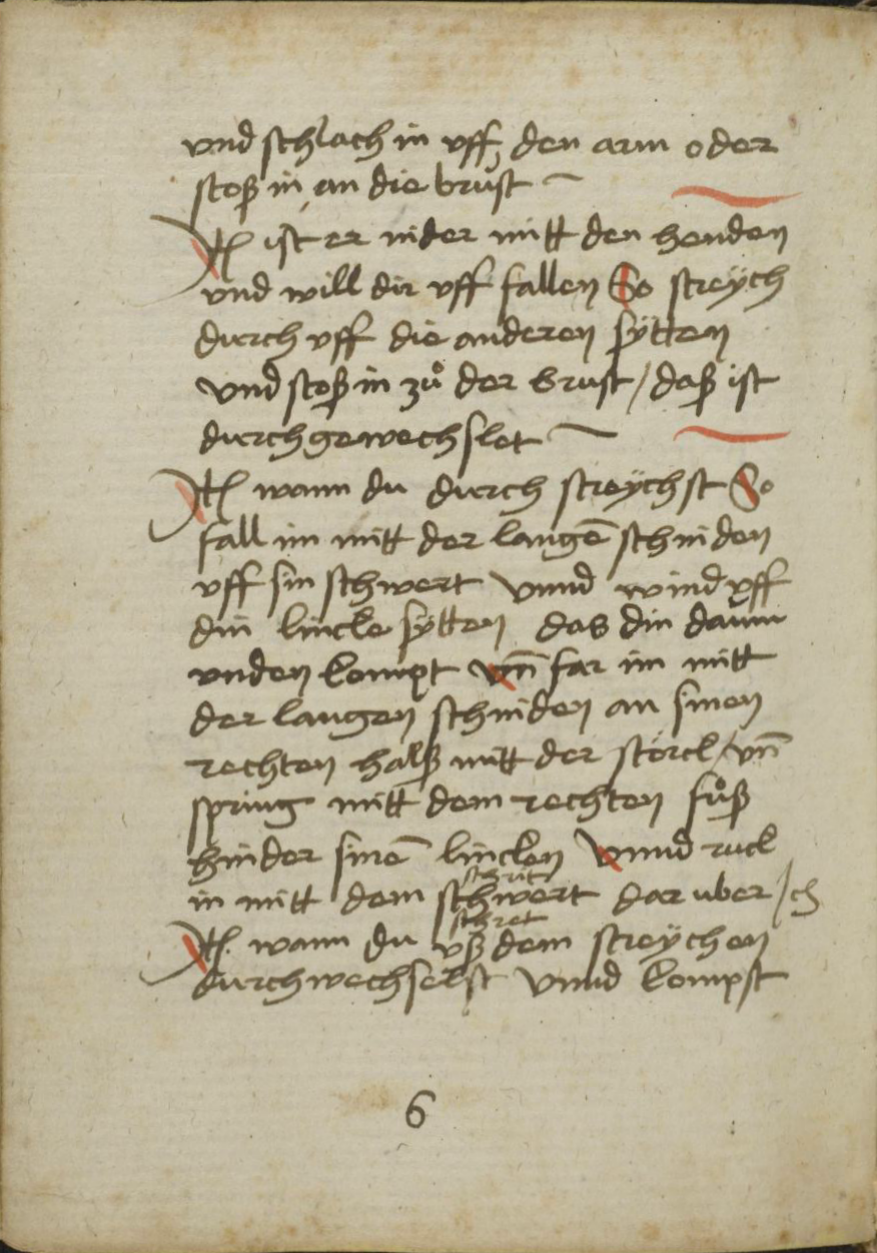 vnd schlach in vff den arm oder
stoß in an die brůst
Jt͞ ist er nider mitt den henden
vnd will dir vff fallen So streÿch
durch vff die anderen sÿtten
vnd stoß in zů der brust / daß ist
durchgewechslet
Jt͞ wann du durch streÿchst So
fall im mitt der langē schniden
vff sin schwert vnnd wind vff
din lincke sÿtten das din daum
vnden kompt vn̄ far im mitt
der langen schniden an sinen
rechten halß mitt der störck / vn̄
spring mitt dem rechten fůß
hinder sinē lincken vnnd ruck
schrit
in mitt dem schwert dar uber / ch
schret
Jt͞ wann du vß dem streÿchen
durchwechselst vnnd kompst
6